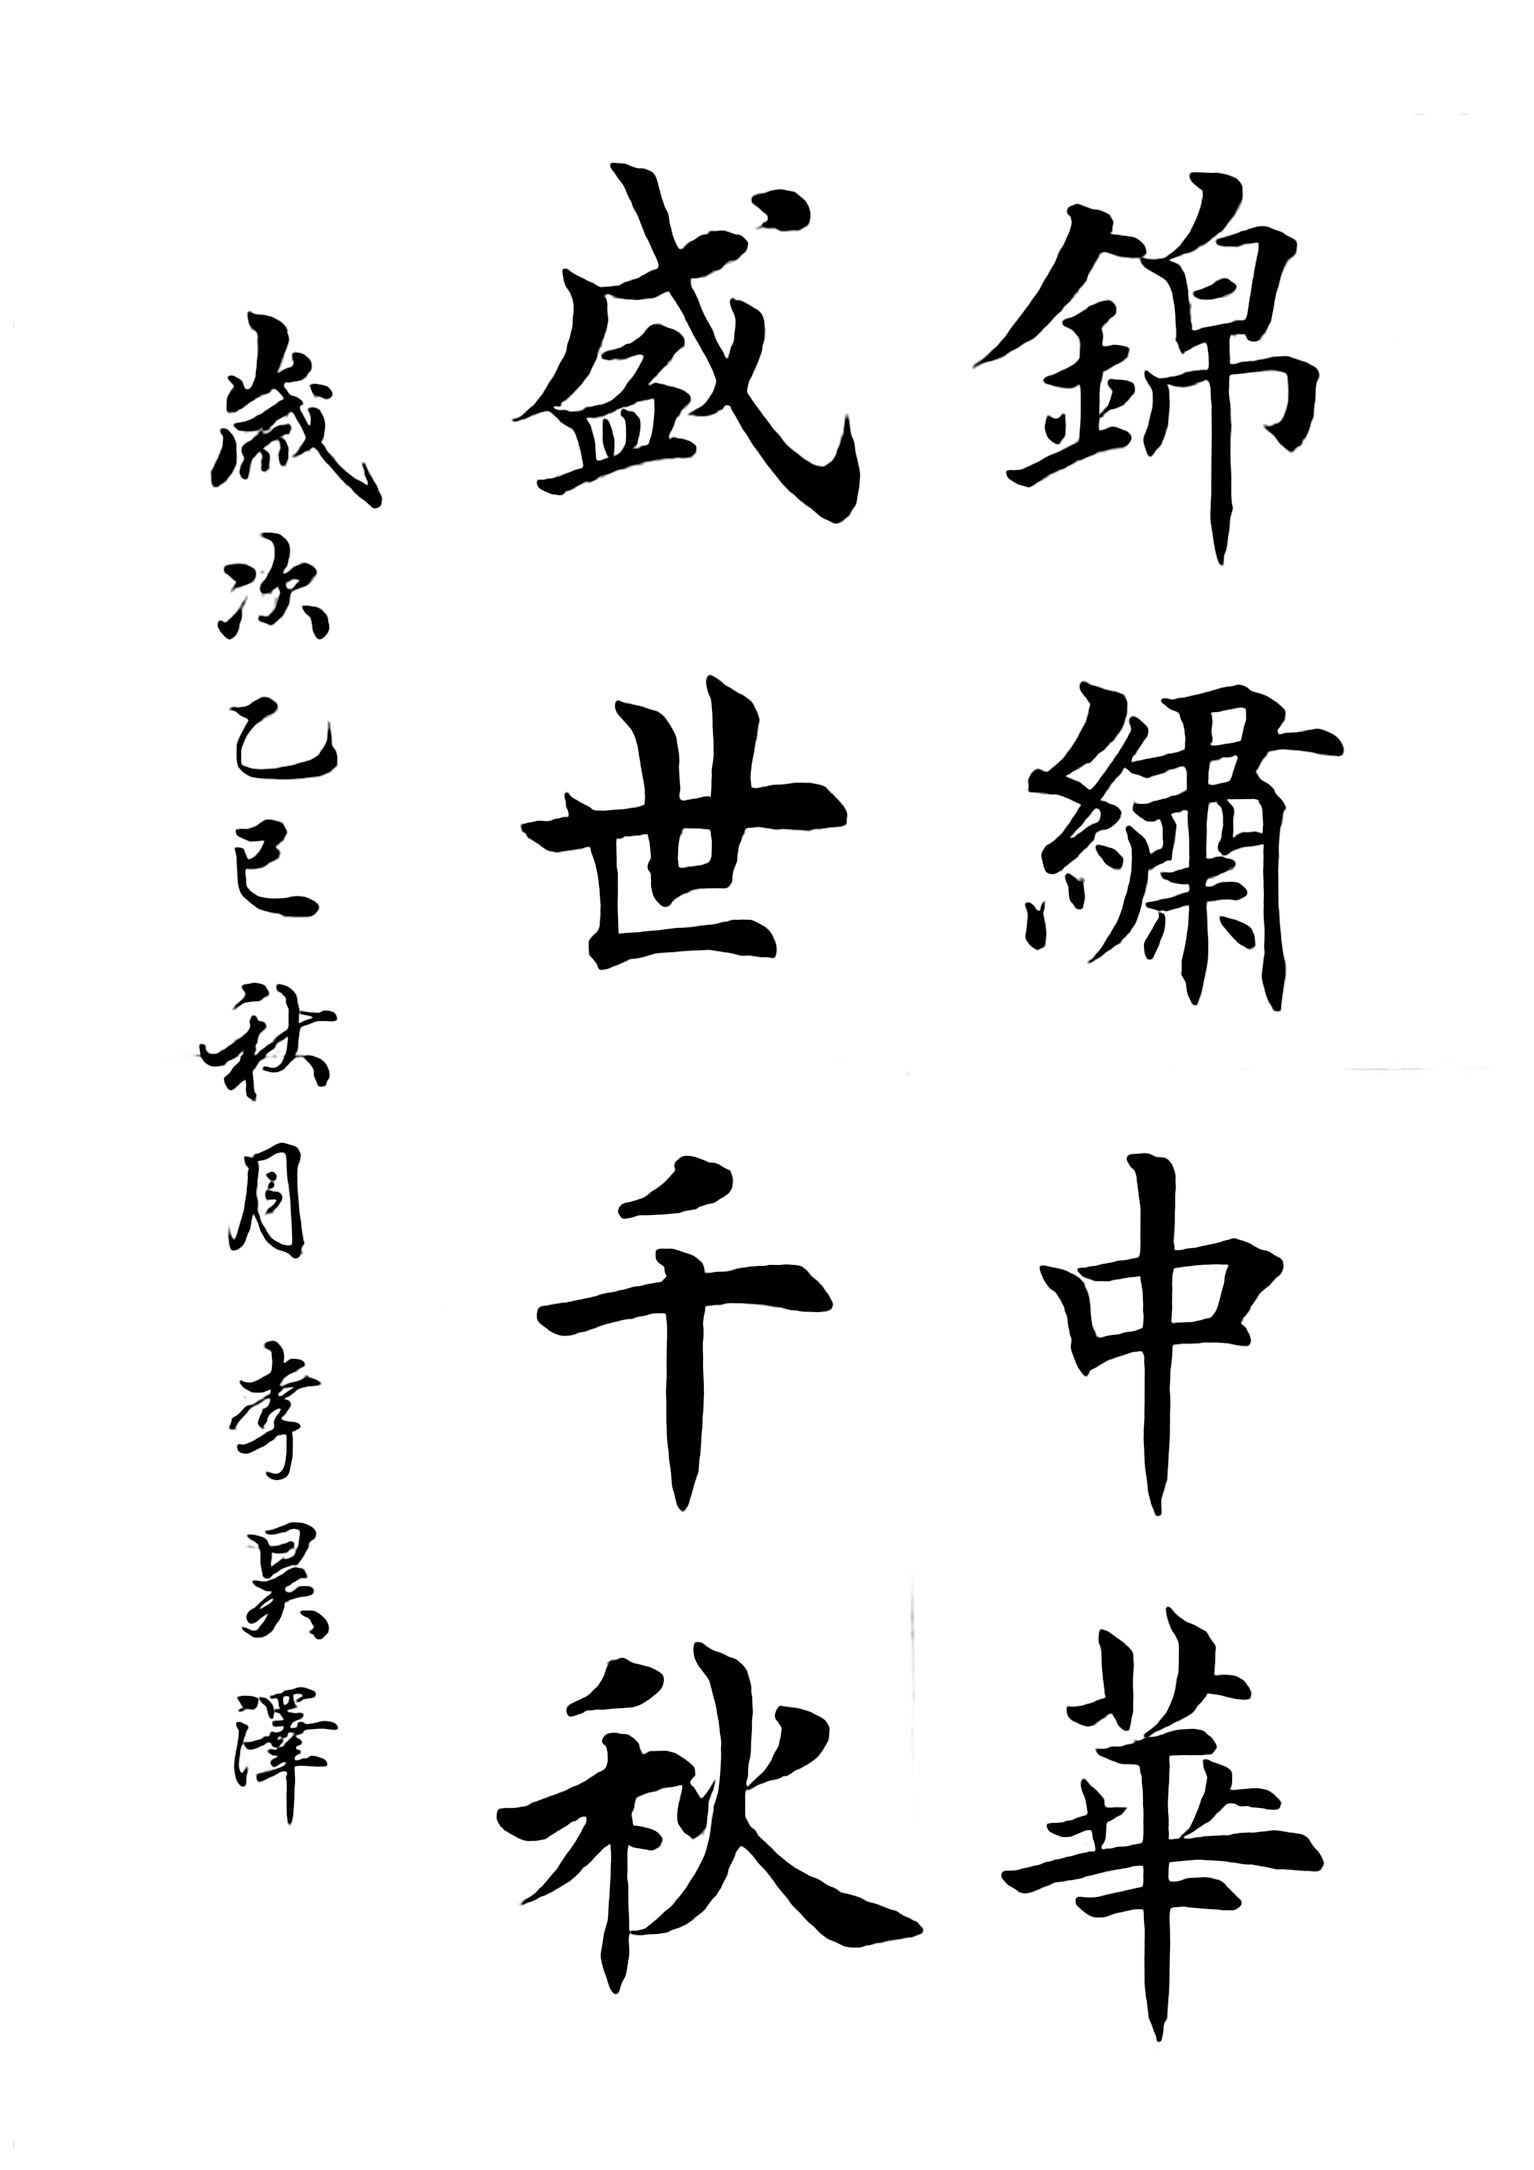 錦繡中華
盛世千秋
歲次乙巳秋月李昊澤